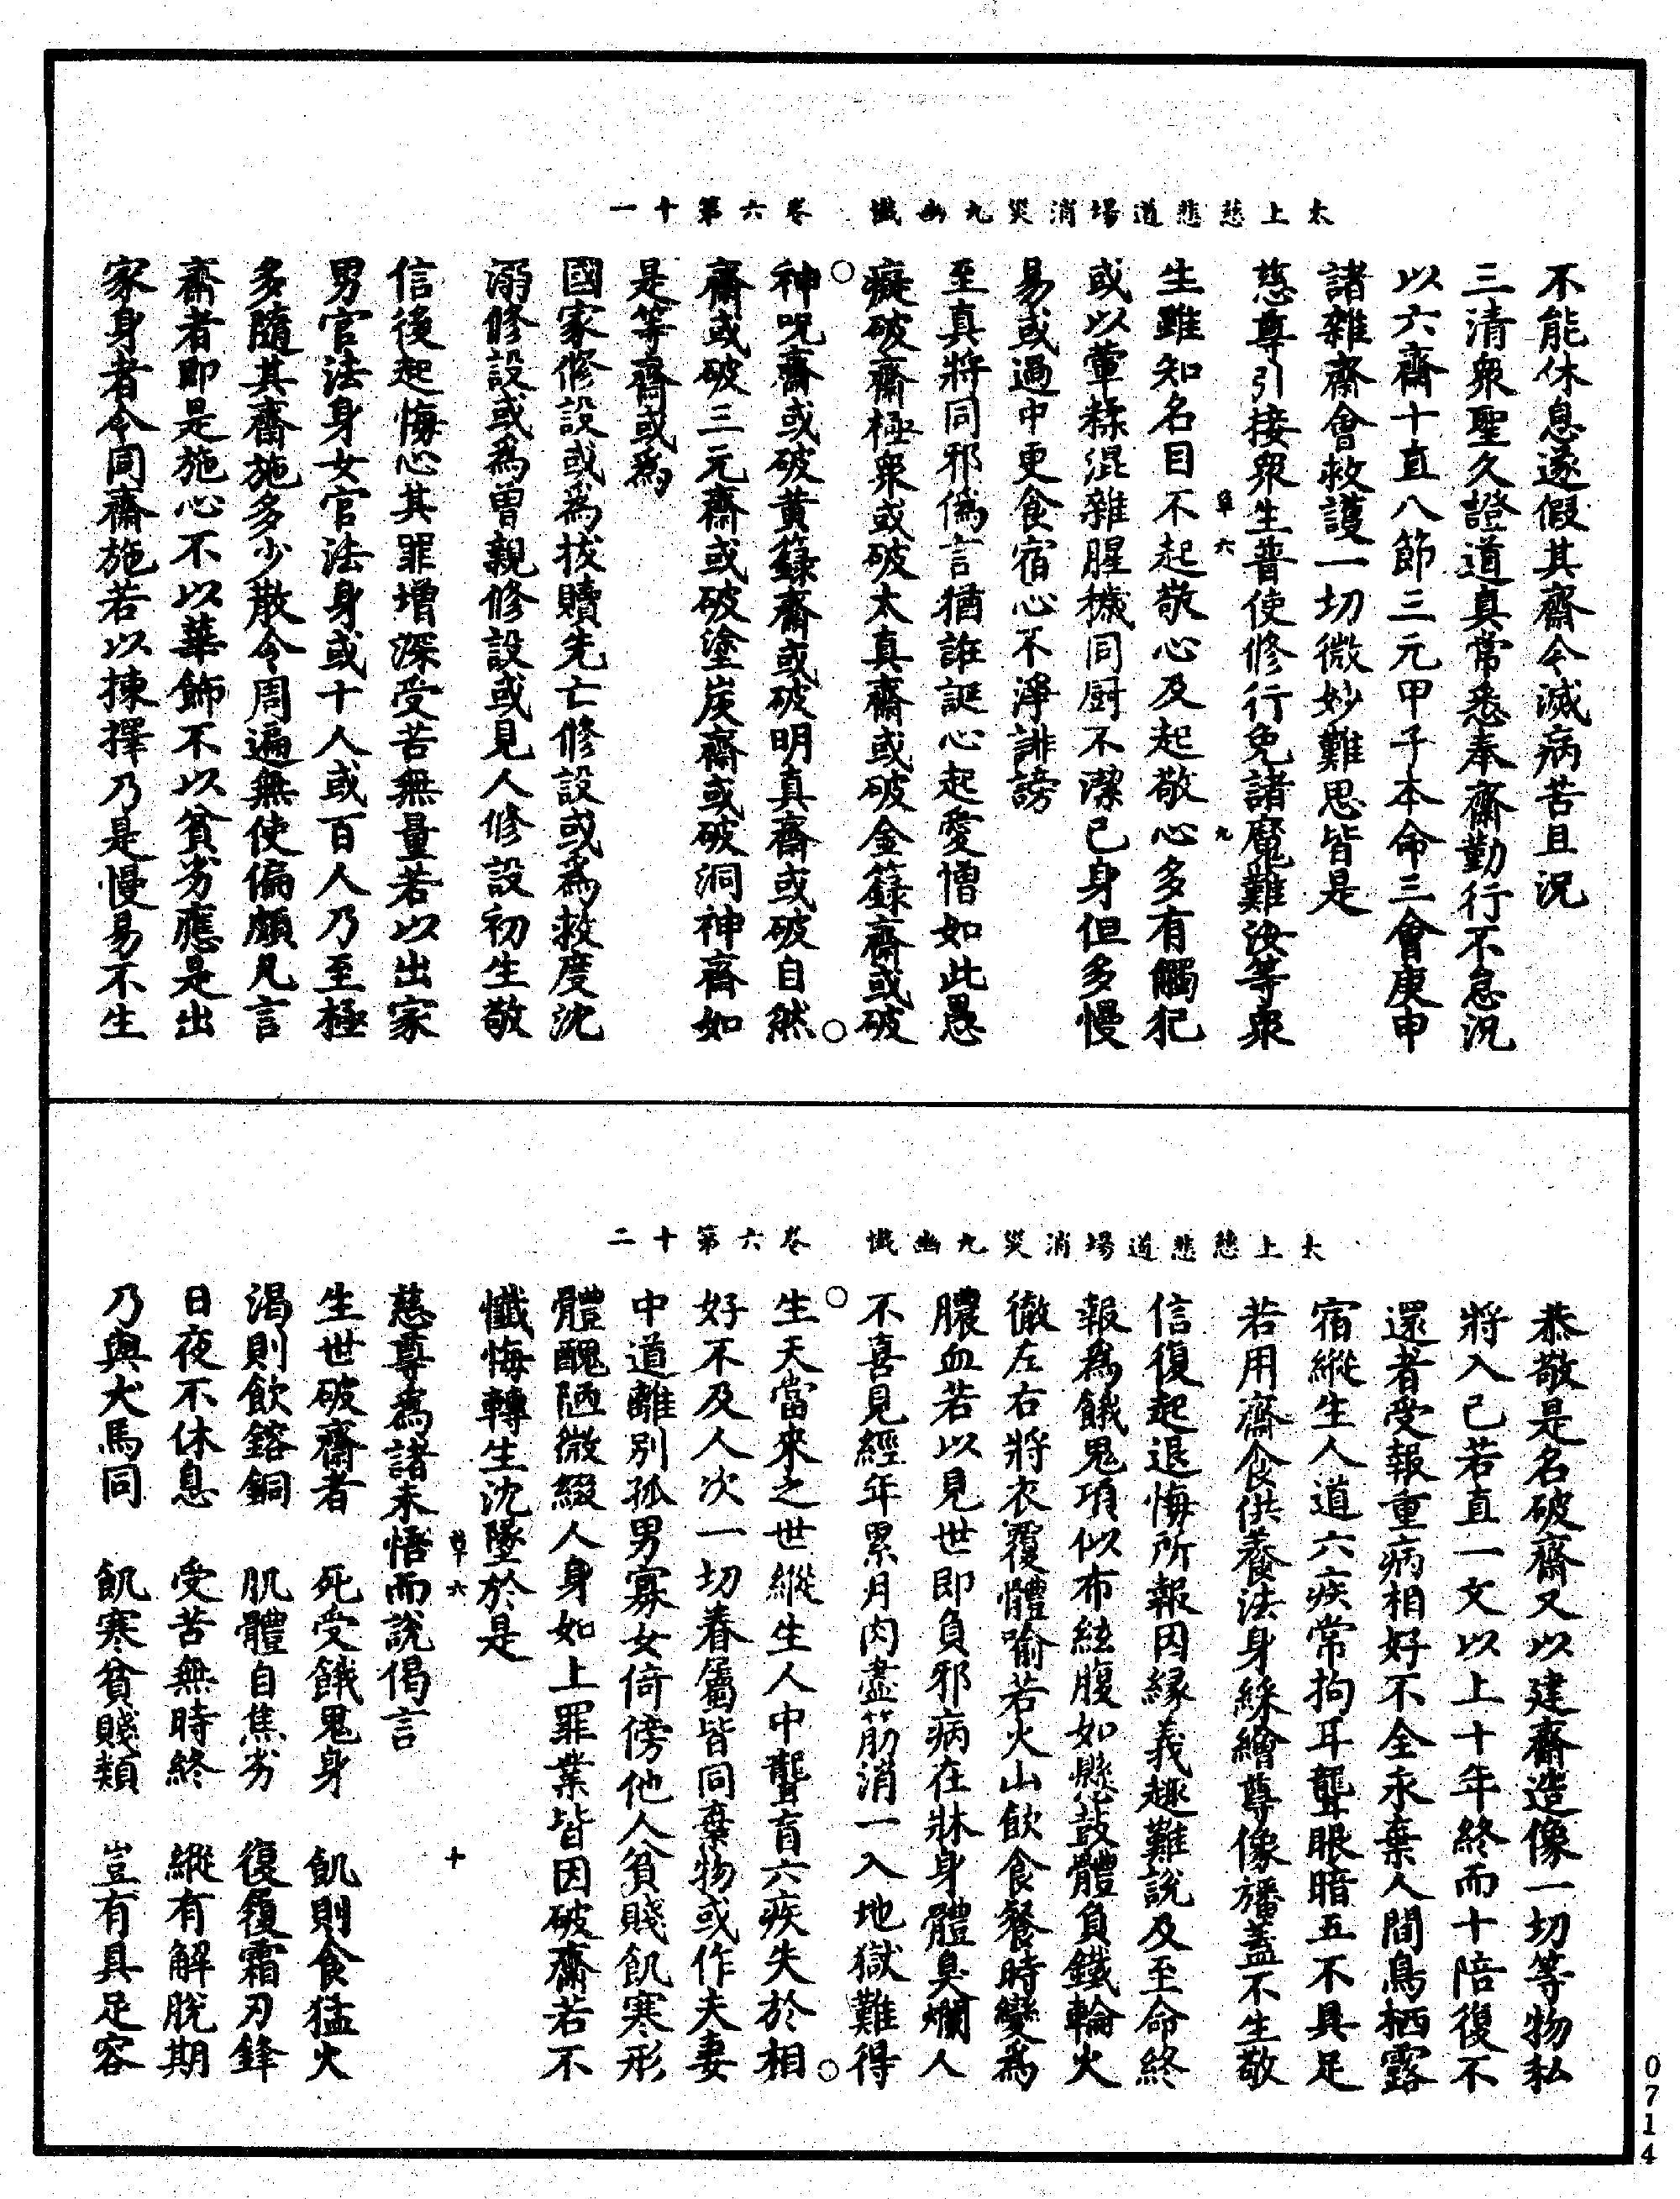 太上慈悲道場消災九幽懺　卷六第十一
不能休息遂假其齋令滅病苦且況
三清衆聖久證道真常悉奉齋勤行不怠況
以六齋十直八節三元甲子本命三會庚申
諸雜齋會救護一切微妙難思皆是
慈尊引接衆生普使修行免諸魔難汝等衆
草六　九
生雖知名目不起敬心及起敬心多有觸犯
或以葷糅混雜腥穢同厨不潔己身但多慢
易或過中更食宿心不淨誹謗
至真將同邪僞言猶誑誕心起愛憎如此愚
癡破齋極衆或破太真齋或破金籙齋或破
神呪齋或破黃籙齋或破明真齋或破自然
齋或破三元齋或破塗炭齋或破洞神齋如
是等齋或爲
國家修設或爲拔贖先亡修設或爲救度沈
溺修設或爲曾親修設或見人修設初生敬
信後起悔心其罪增深受苦無量若以出家
男官法身女官法身或十人或百人乃至極
多隨其齋施多少散令周遍無使偏頗凡言
齋者即是施心不以華飾不以貧劣應是出
家身者令同齋施若以揀擇乃是慢易不生
太上慈悲道場消災九幽懺　卷六第十二
恭敬是名破齋又以建齋造像一切等物私
將入己若直一文以上十年終而十陪復不
還者受報重病相好不全永棄人間鳥栖露
宿縱生人道六疾常拘耳聾眼暗五不具足
若用齋食供養法身綵繪尊像旛蓋不生敬
信復起退悔所報因緣義趣難說及至命終
報爲餓鬼項似布絃腹如懸鼓體負鐵輪火
徹左右將衣覆體喻若火山飲食餐時變爲
膿血若以見世即負邪病在牀身體臭爛人
不喜見經年累月肉盡筋消一入地獄難得
生天當來之世縱生人中聾盲六疾失於相
好不及人次一切眷屬皆同棄物或作夫妻
中道離別孤男寡女倚傍他人貧賤飢寒形
體醜陋微綴人身如上罪業皆因破齋若不
懺悔轉生沈墜於是
草六　十
慈尊爲諸未悟而說偈言
生世破齋者　死受餓鬼身　飢則食猛火
渴則飲鎔銅　肌體自焦劣　復履霜刃鋒
日夜不休息　受苦無時終　縱有解脫期
乃與犬馬同　飢寒貧賤類　豈有具足容
0714